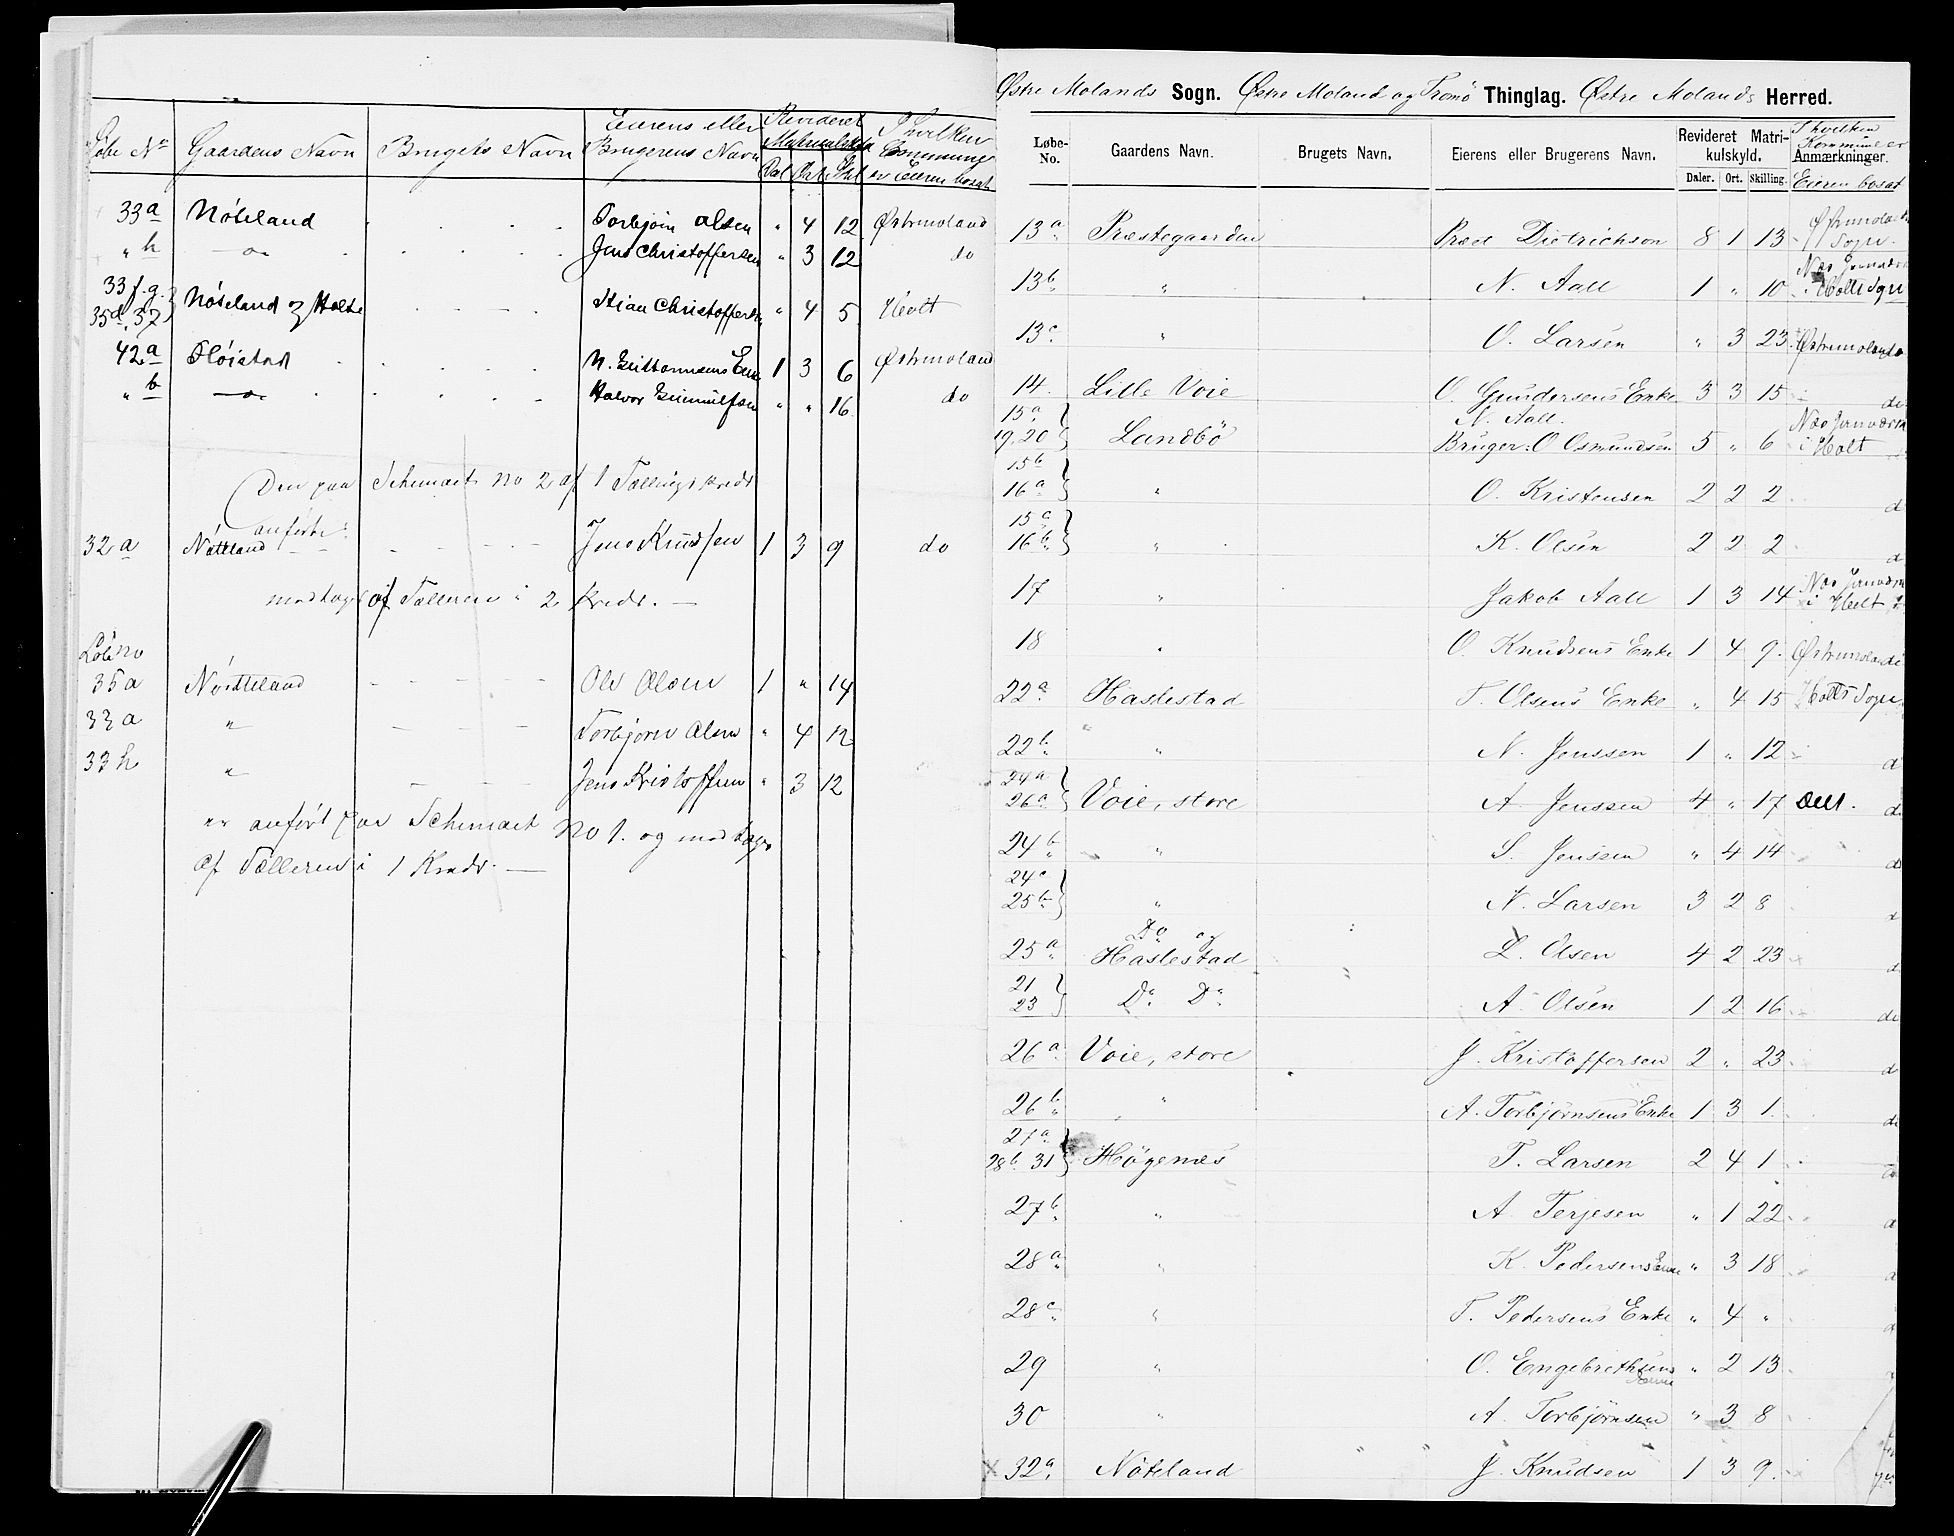 Løbe No Gaardens Navn Brugets Navn Eierens eller Brugerens Navn Revideret Matrikulskyld I hvilken Commune
Dal Ort Skl er Eieren bosat
33a Nöteland Torbjörn Olsen " 4 12 Østremoland
" h — do — Jens Christoffersen " 3 12 do
33f.g. 35d, 37 } Nöteland og Holte Stian Christoffersen " 4 5 Holt
42a Flöistad N. Guttormsens Enke 1 3 6 Østremoland
" b — do — Halvor Gunnulfsen " " 16 do
Den paa Schemaet No 2 af 1 Tællingskreds
anførte:
32a Nøteland Jens Knudsen 1 3 9 do
modtages af Tælleren i 2 Kreds. —
Løbe no
35a Nordteland Ole Olsen 1 " 14
33a " Torbjørn Olsen " 4 12
33h " Jens Kristoffersen " 3 12
er anført paa Schemaet No 1. og modtages
af Tælleren i 1 Kreds. —
Østre Molands Sogn. Østre Moland og Tromø Thinglag. Østre Molands Herred.
Løbe-No. Gaardens Navn. Brugets Navn. Eierens eller Brugerens Navn. Revideret Matrikulskyld. I hvilken Kommune er
Anmærkninger.
Daler. Ort. Skilling. Eieren bosat
13a Præstegaarden Præst Dietrichson 8 1 13 Østremolands Sogn.
13b " N. Aall 1 " 10 Næs Jernværk i Holts Sogn
13c " O. Larsen " 3 23 Østremoland
14. Lille Voie O. Gundersens Enke 3 3 15 do
15a 19, 20 } Landbö N. Aall. Bruger: O Osmundsen 5 " 6 Næs Jernværk i Holt
15b 16a } " O. Kristensen 2 2 2 d
15c 16b } " K. Olsen 2 2 2 d
17 " Jakob Aall 1 3 14 Næs Jernværk i Holt
18 " O. Knudsens Enke 1 4 9. Østremoland
22a Haslestad T. Olsens Enke " 4 15 Holts Sogn
22b " N. Jenssen 1 " 12 d
24a 26a } Voie, store A. Jenssen 4 " 17 d
24b " S. Jenssen " 4 14 d
24c 25b } " N. Larsen 3 2 8 d
25a Do og Haslestad L. Olsen 4 2 23 d
21 23 } Do Do A. Olsen 1 2 16 do
26a Voie, store J. Kristoffersen 2 " 23 d
26b " A. Torbjørnsens Enke 1 3 1. do
27a 28b. 31 } Høgenæs T. Larsen 2 4 1
27b " A. Terjesen " 1 22 d
28a " K. Pedersens Enke " 3 18 d
28c " T. Pedersens Enke " 4 " d
29 " O. Engebrethsens Enke " 2 13
30 " A. Torbjørnsen " 3 8
x 32a Nöteland J. Knudsen 1 3 9.